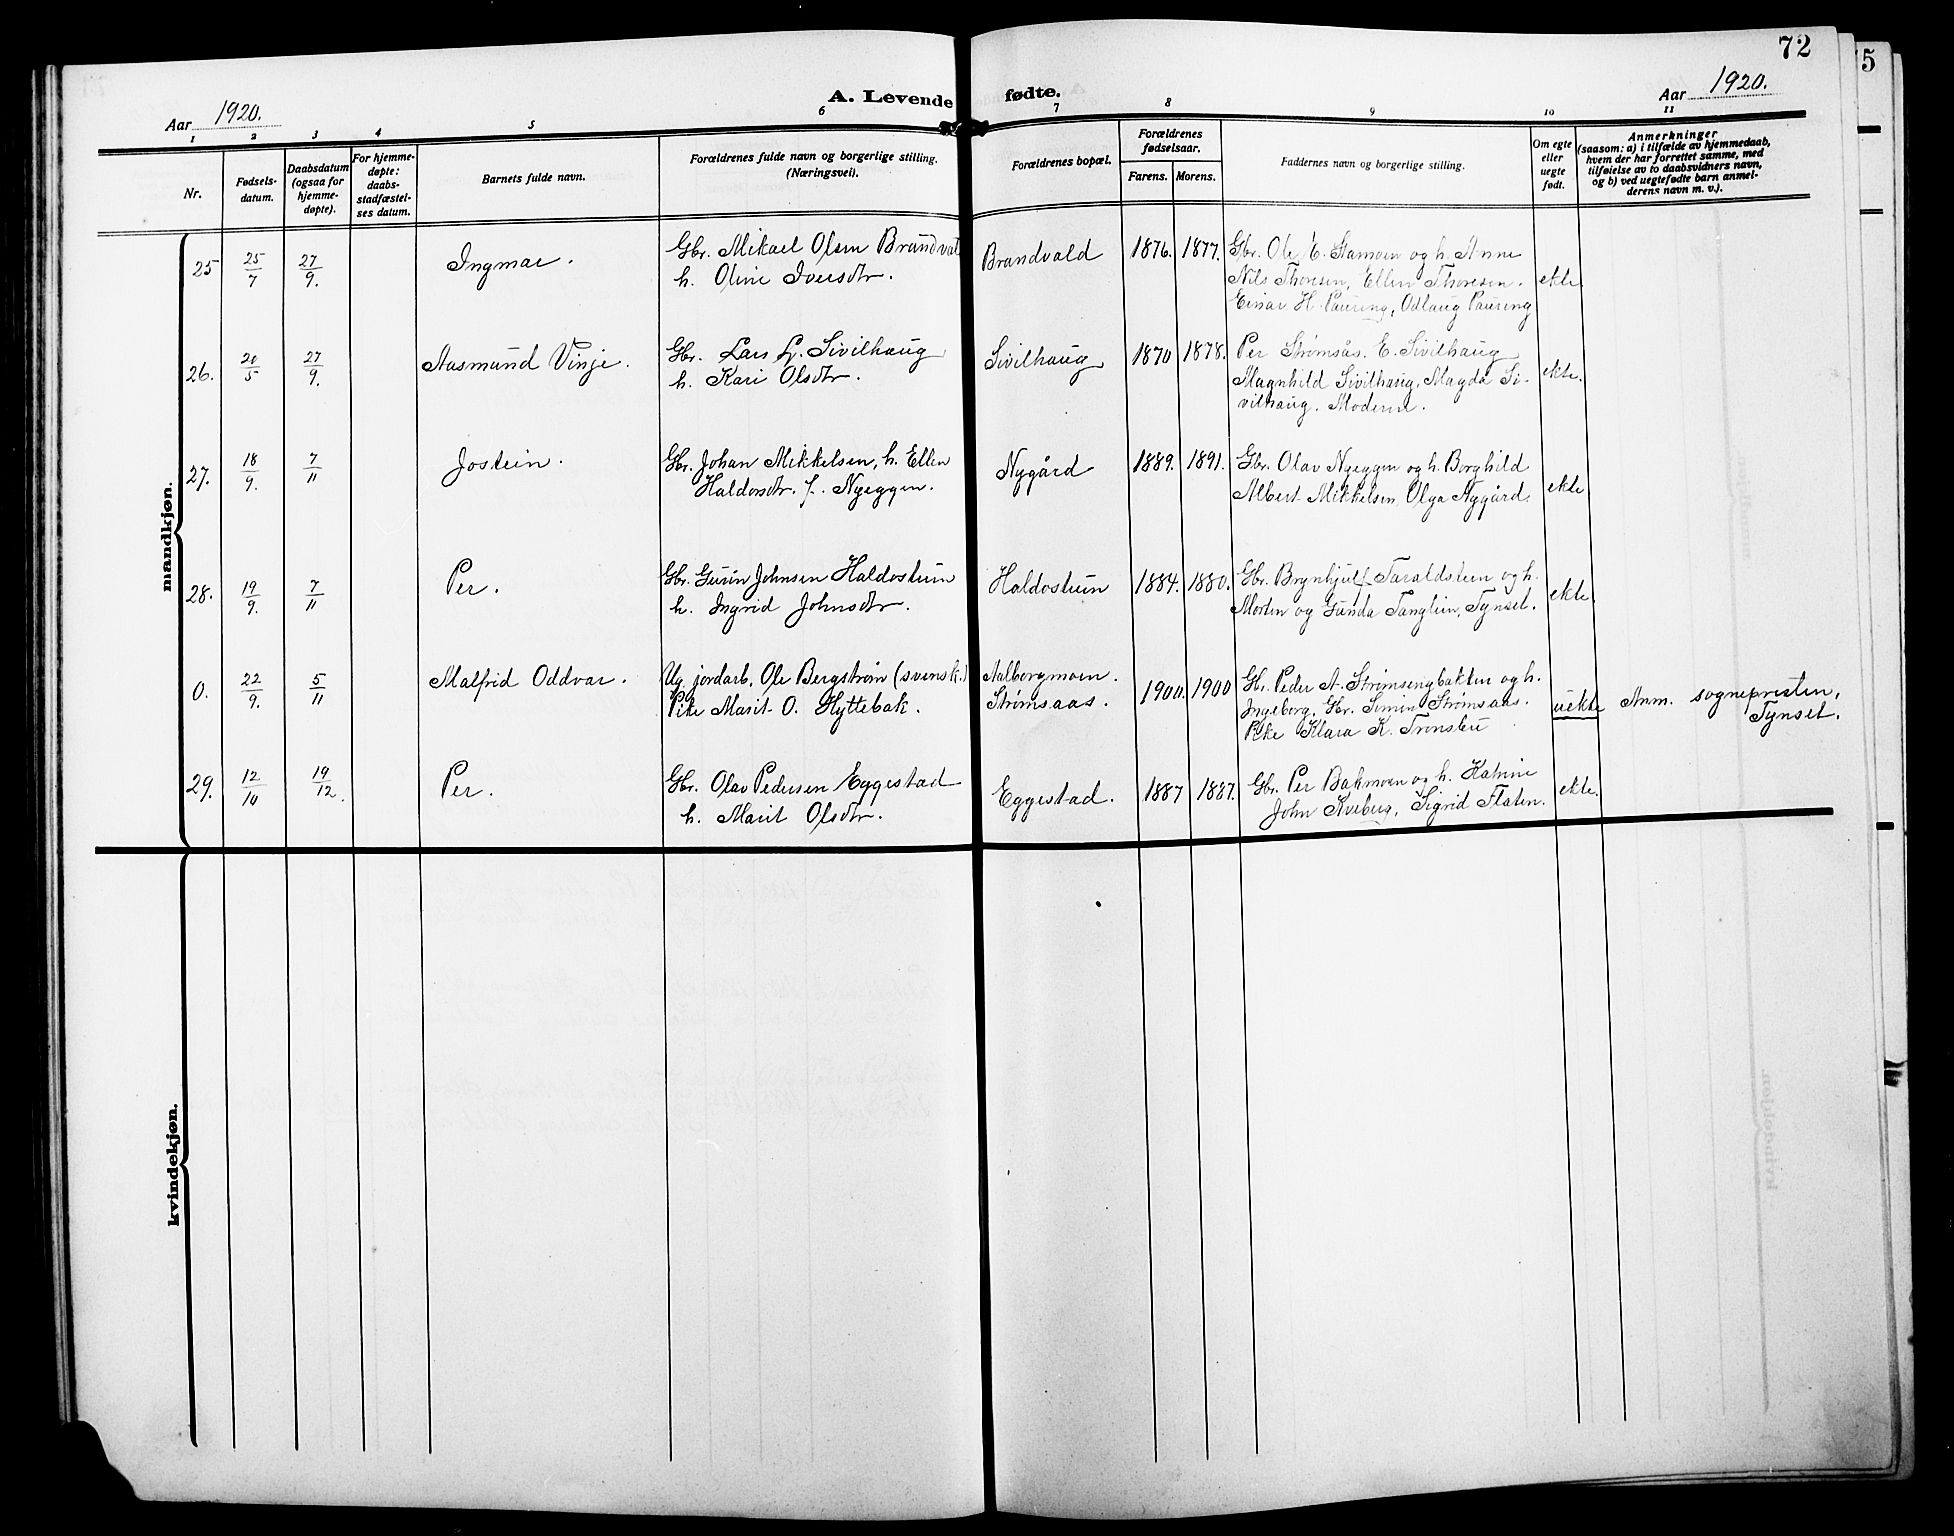 72
75
Aar 1920.
A. Levende fødte.
Aar 1920.
1 2 3 4 5 6 7 8 9 10 11
Nr.
Fødsels-
datum.
Daabsdatum
(ogsaa for
hjemme-
døpte).
For hjemme-
døpte:
daabs-
stadfæstel-
ses datum.
Barnets fulde navn.
Forældrenes fulde navn og borgerlige stilling.
(Næringsvei).
Forældrenes bopæl.
Forældrenes
fødselsaar.
Farens. Morens.
Faddernes navn og borgerlige stilling.
Om egte
eller
uegte
født.
Anmerkninger
(saasom: a) i tilfælde av hjemmedaab,
hvem der har forrettet samme, med
tilføielse av to daabsvidners navn,
og b) ved uegtefødte barn anmel-
derens navn m. v.).
mandkjøn.
25 25/7 27/9. Ingmar.
Gbr. Mikael Olsen Brandval
h. Oline Iversdtr.
Brandvald 1876. 1877.
Gbr. Ole E. Stamoen og h. Anne
Nils Thoresen, Ellen Thoresen.
Einar H. Paureng, Odlaug Paureng
ekte
26. 20/5 27/9. Aasmund Vinje.
Gbr. Lars L. Sivilhaug
h. Kari Olsdtr.
Sivilhaug 1870 1878.
Per Strømsås. E. Sivilhaug
Magnhild Sivilhaug, Magda Si-
vilhaug. Moderen.
ekte.
27. 18/9. 7/11 Jostein.
Gbr. Johan Mikkelsen, h. Ellen
Haldorsdtr. f. Nyeggen.
Nygård 1889. 1891.
Gbr. Olav Nyeggen og h. Borghild
Albert Mikkelsen, Olga Nygård.
ekte
28. 19/9. 7/11 Per.
Gbr. Johnsen Haldostuen
h. Ingrid Johnsdtr.
Haldostuen 1884. 1880.
Gbr. Brynhjulf Taraldsteen og h.
Morten og Gunda Tanglien, Tynset.
ekte
0. 22/9. 5/11 Malfrid Oddvar.
Ug. jordarb. Ole Bergstrøm (svensk.)
Pike Marit O. Hyttebak.
Aalborgmoen.
Strømsaas.
1900. 1900
Gbr. Peder A. Strømsengbakken og h.
Ingeborg, Gbr. Simen Strømsaas.
Pike Klara K. Tronsbu
uekte
Anm. sognepresten,
Tynset.
29. 12/10 19/12. Per.
Gbr. Olav Pedersen Eggestad
h. Marit Olsdtr.
Eggestad. 1887 1887.
Gbr. Per Bakmoen og h. Katrine
John Kveberg, Sigrid Flaten.
ekte.
kvindekjøn.